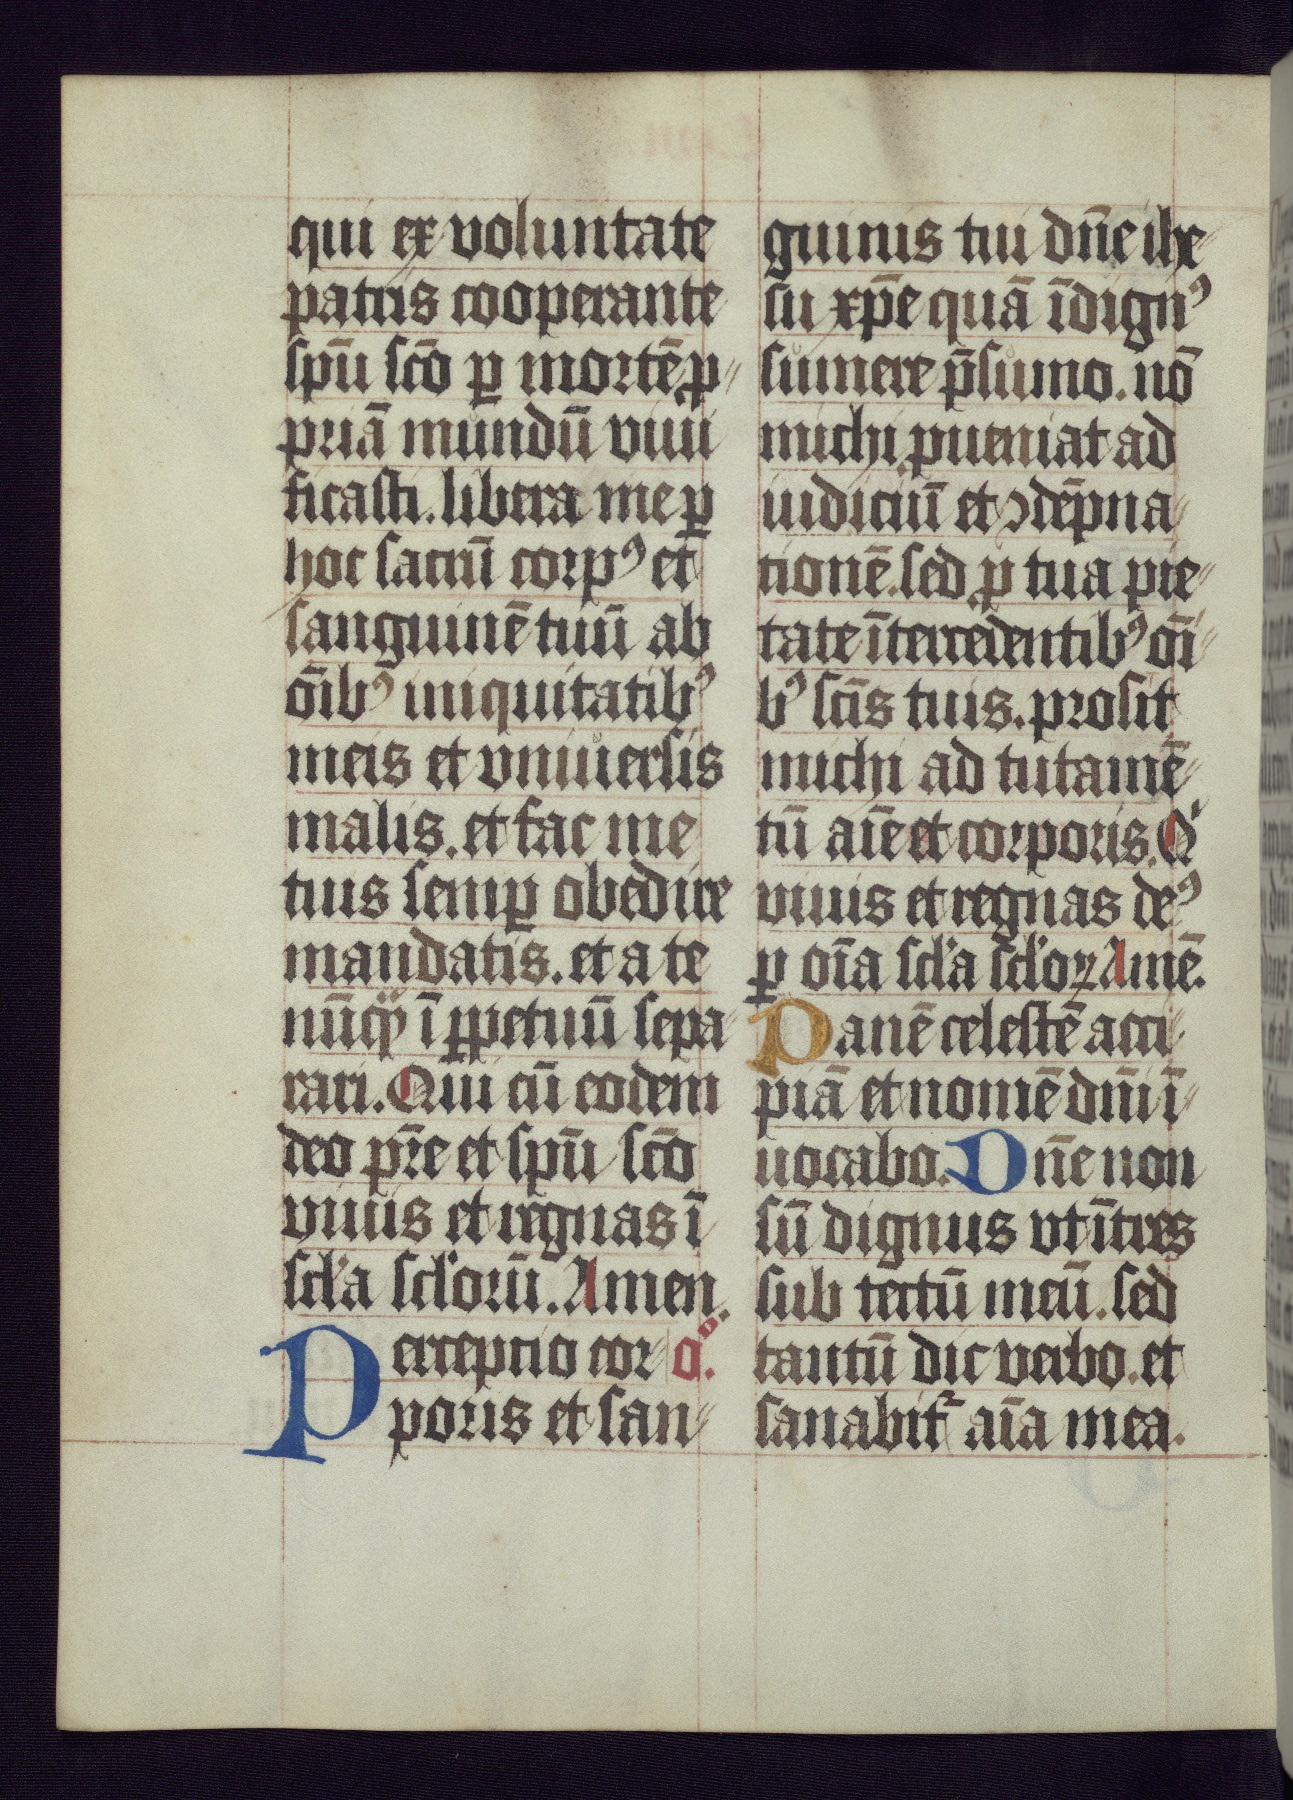 qui ex voluntate
patris cooperante
spū sc̄o ꝑ mortē ꝓ
priā mundū viui
ficasti. libera me ꝑ
hoc sacrū corpꝰ et
sanguinē tuū ab
ōibꝰ iniquitatibꝰ
meis et vniuersis
malis. et fac me
tuis semꝑ obedire
mandatis. et a te
nūcꝙ ī ꝑpetuū sepa
rari. Qui cū eodem
deo pr̄e et spū sc̄o
viuis et regnas ī
scl'a scl'orū. Amen.
Perceptio cor o.
poris et san
guinis tui dn̄e ihe
su xp̄e quā īdignꝰ
sumere p̄sumo. nō
michi ꝓueniat ad
iudiciū et ꝯdēpna
tionē. sed ꝓ tua pie
tate ītercedentibꝰ oī
bꝰ scīs tuis. prosit
michi ad tutamē
tū aīe et corporis. Q'
viuis et regnas deꝰ
ꝑ oīa scl'a scl'oꝝ Amē.
Panē celestē acci
piā et nomē dn̄i ī
uocabo. Dn̄e non
sū dignus vt ītres
sub tectū meū. sed
tantū dic verbo. et
sanabit᷑ aīa mea.